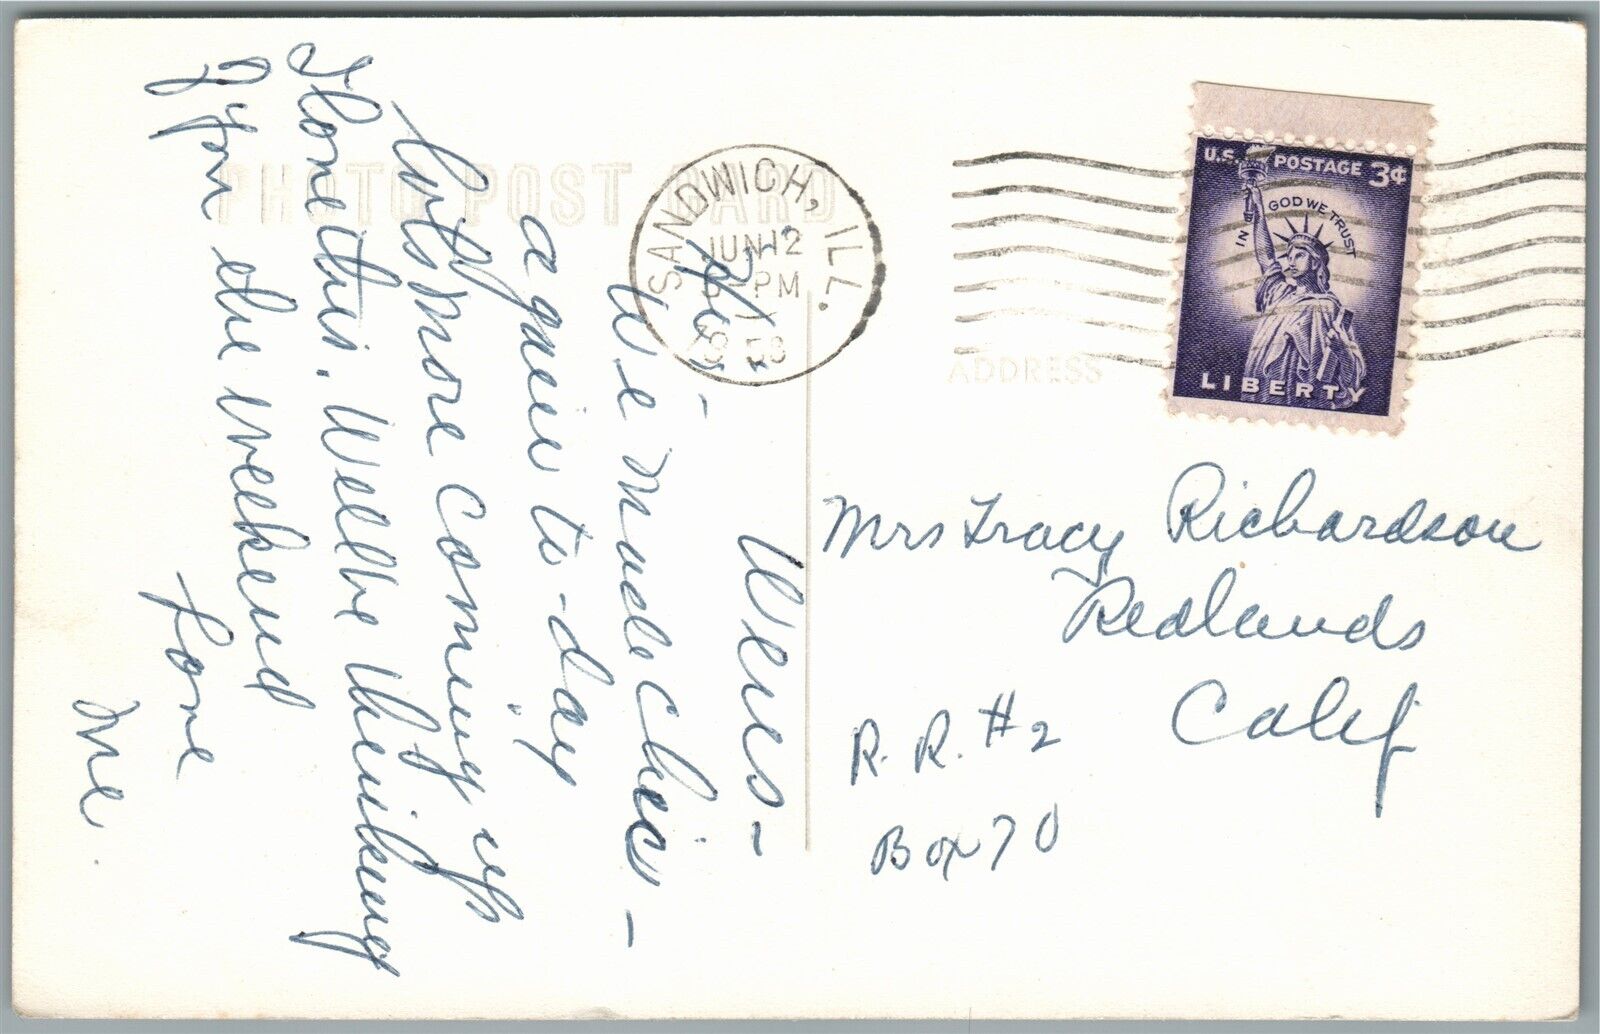 PHOTO POST CARD
SANDWICH, ILL.
JUN 12
PM
U.S. POSTAGE 3¢
IN GOD WE TRUST
LIBERTY
ADDRESS
Wens-
We made Chics-
again to-day
Lots more coming up
Home this. Well be thinking
of you the weekend
Love
Me.
Mrs Tracy Richardson
Redlands
Calif
R.R. #2
Box 70